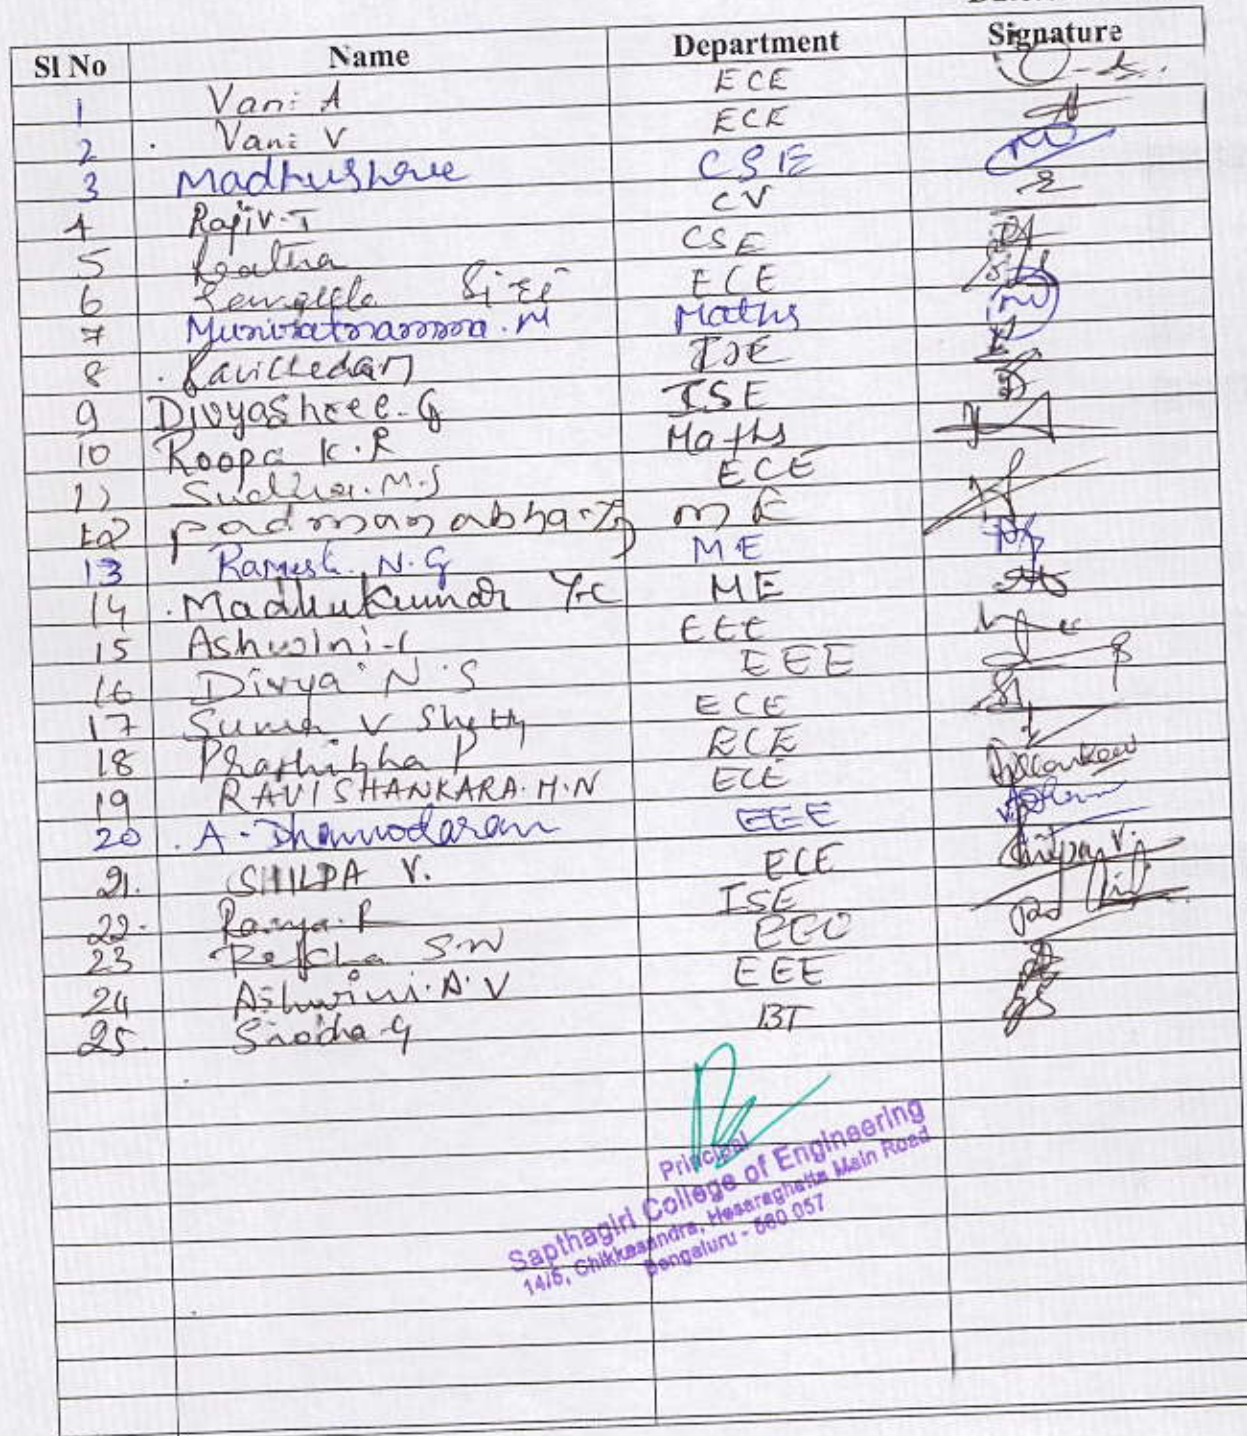 Sl No Name Department Signature
1 Vani A ECE
2 Vani V ECE
3 Madhushree CSE
4 Rajiv.T CV
5 CSE
6 ECE
7 Muniratnamma.M Maths
8 ISE
9 Divyashree.G ISE
10 Roopa K.R Maths
11 Sudha.M.S ECE
12 padmanabha ME
13 Ramesh N.G ME
14 Madhukumar Y.C ME
15 Ashwini EEE
16 Divya N.S EEE
17 Suma V Shetty ECE
18 Prathibha P ECE
19 RAVISHANKARA.M.N ECE
20 A. Dhamodaran EEE
21. SHILPA V. ECE Shilpa V.
22. Ramya.R ISE
23 Rekha S.N
24 Ashwini.A.V EEE
25. BT
Principal
Sapthagiri College of Engineering
14/5, Chikkasandra, Hesaraghatta Main Road
Bengaluru - 560 057